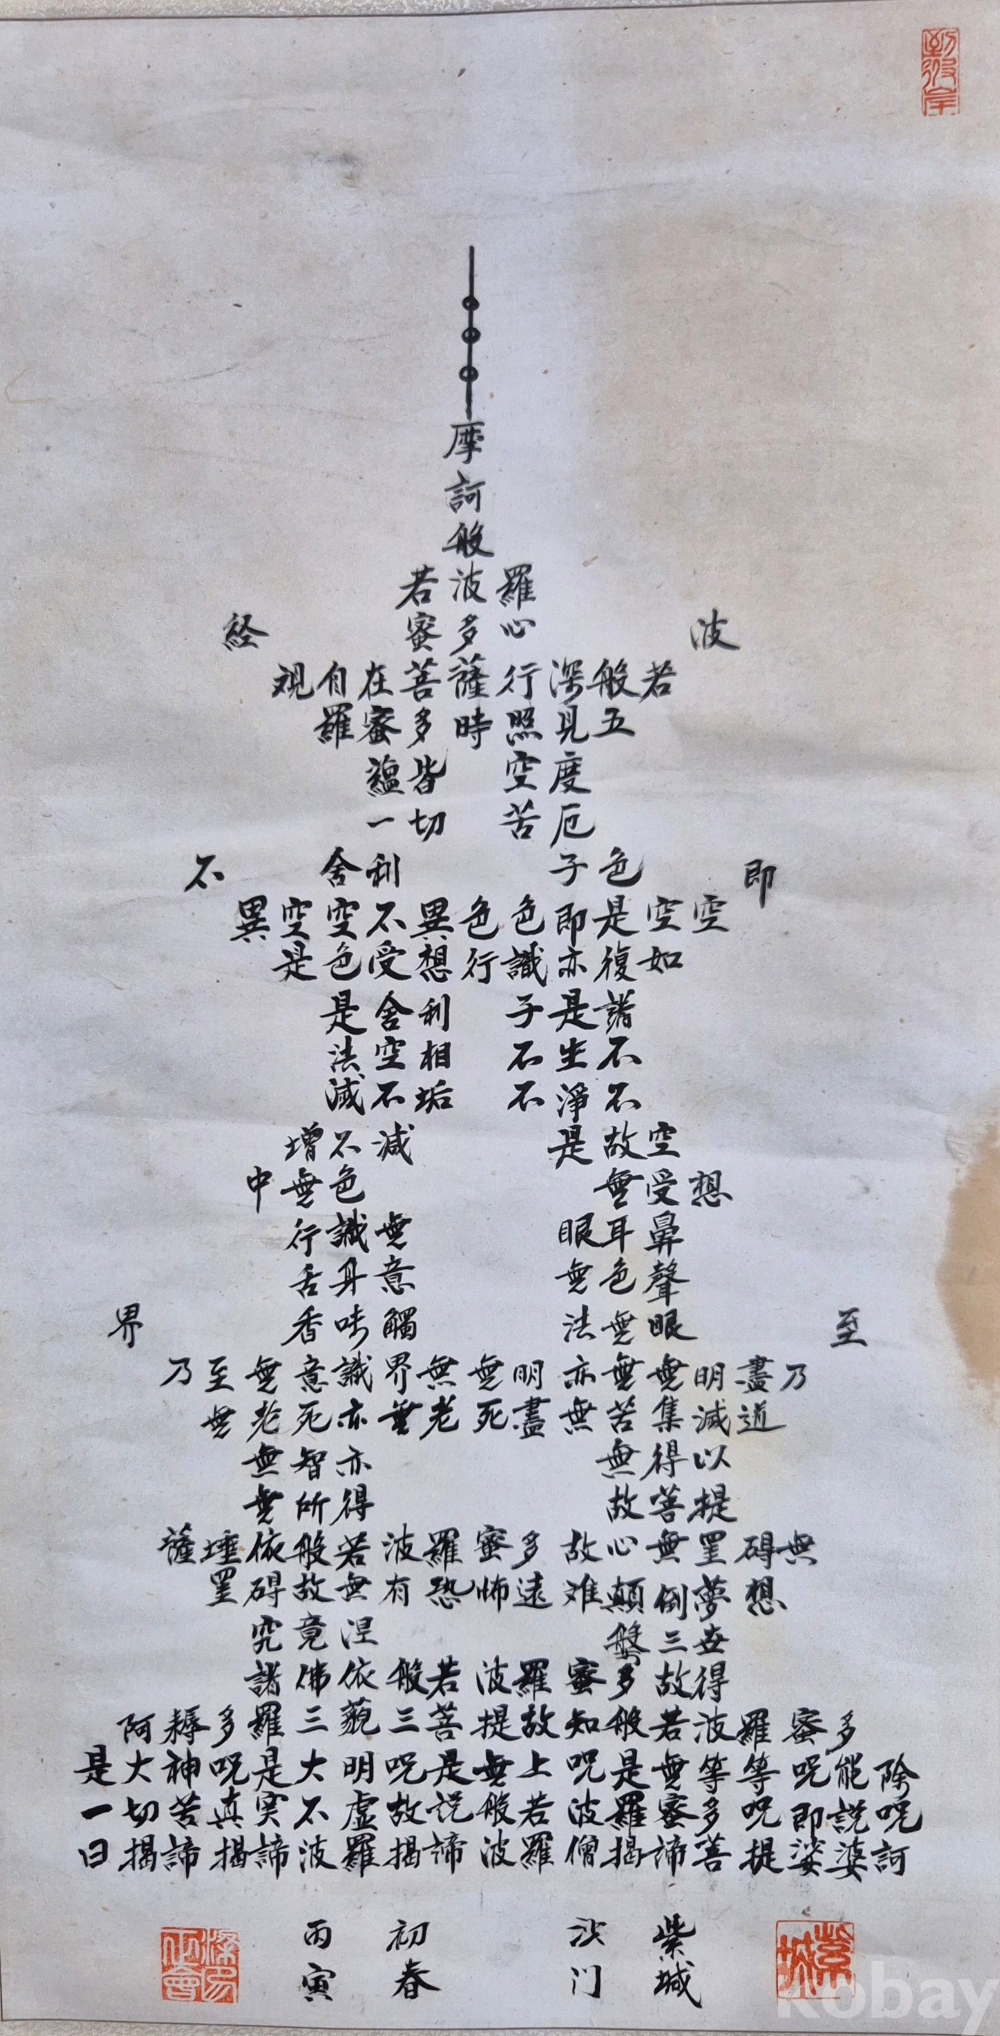 到彼岸
摩
訶
般
若波羅
経 蜜多心 波
観自在菩薩行深般若
羅蜜多時照見五
蘊皆空度
一切苦厄
不 舍利子色 即
異空空不異色色即是空空
是色受想行識亦復如
是舍利子是諸
法空相不生不
滅不垢不淨不
增不減是故空
中無色無受想
行識無眼耳鼻
舌身意無色聲
界 香味觸法無眼 至
乃至無意識界無無明亦無無明盡乃
無老死亦無老死盡無苦集滅道
無智亦無得以
無所得故菩提
薩埵依般若波羅蜜多故心無罣碍無
罣碍故無有恐怖遠难顛倒夢想
究竟涅盤三世
諸佛依般若波羅蜜多故得
阿耨多羅三藐三菩提故知般若波羅蜜多
是大神呪是大明呪是無上呪是無等等呪能除
一切苦真実不虚故説般若波羅蜜多呪即説呪
曰揭諦揭諦波羅揭諦波羅僧揭諦菩提娑婆訶
丙寅 初春 沙门 紫城
紫城
kobay